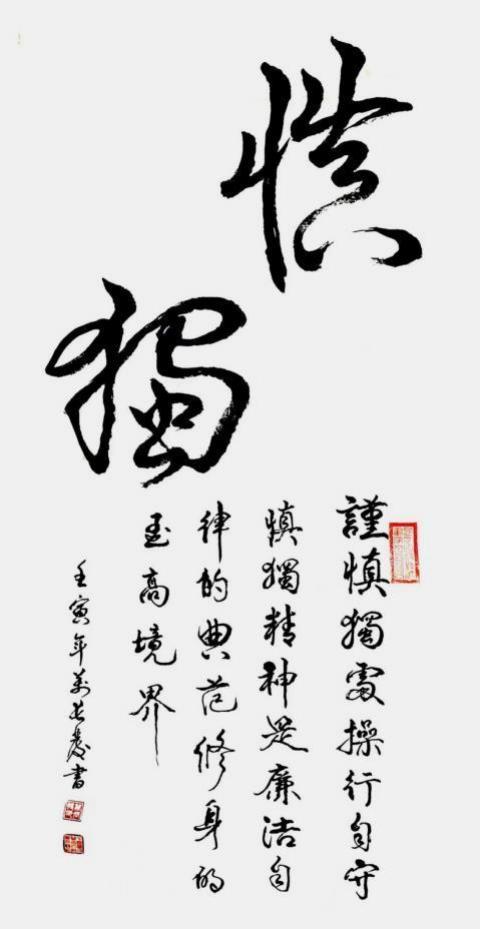 慎獨
謹慎獨處操行自守
慎獨精神是廉洁自
律的典范修身的
至高境界
壬寅年萬长慶書